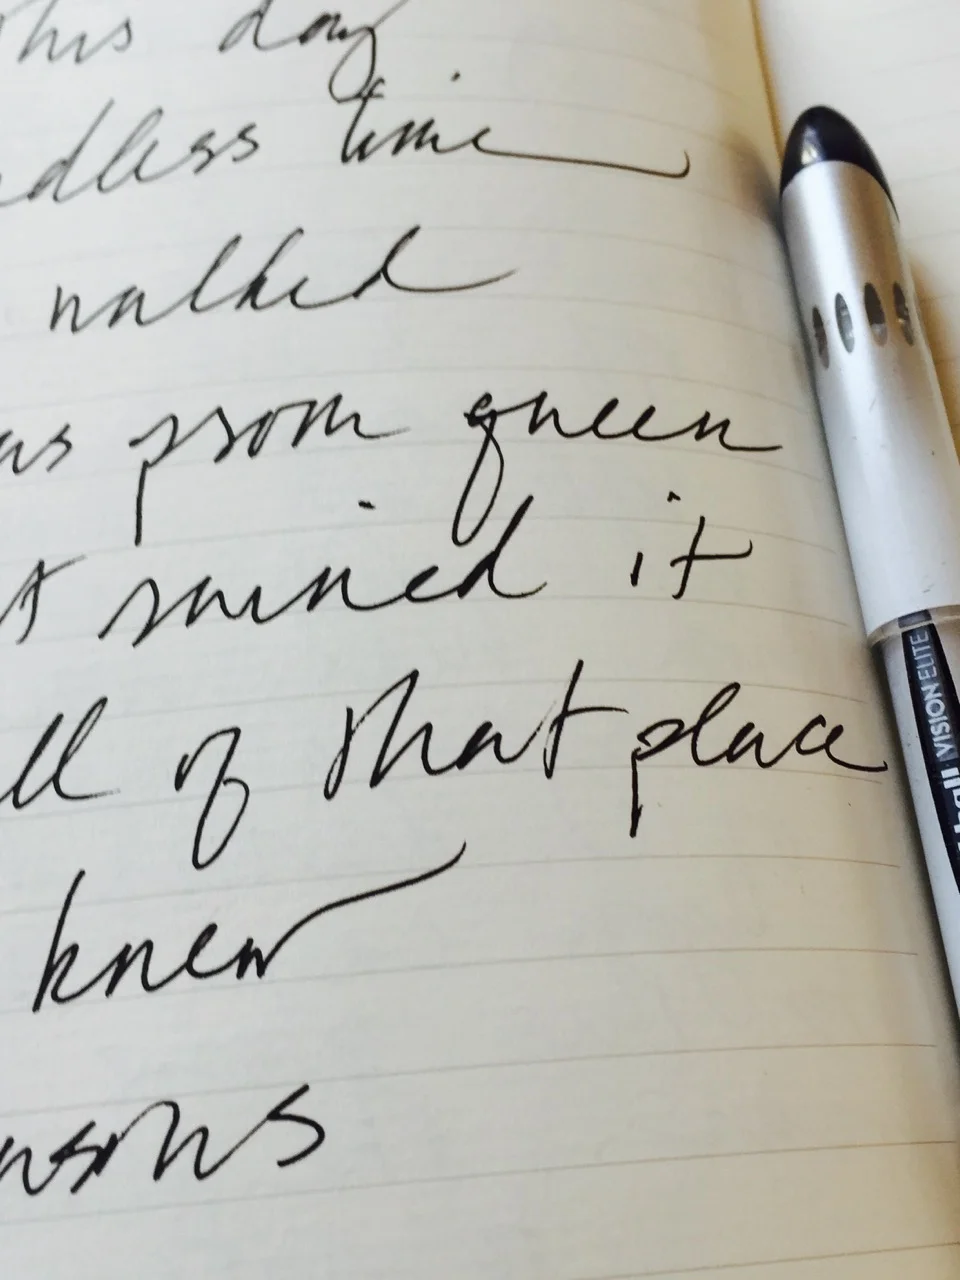 this day
dless time
walked
as prom queen
t ruined it
ll of that place
knew
asons
ball VISION ELITE